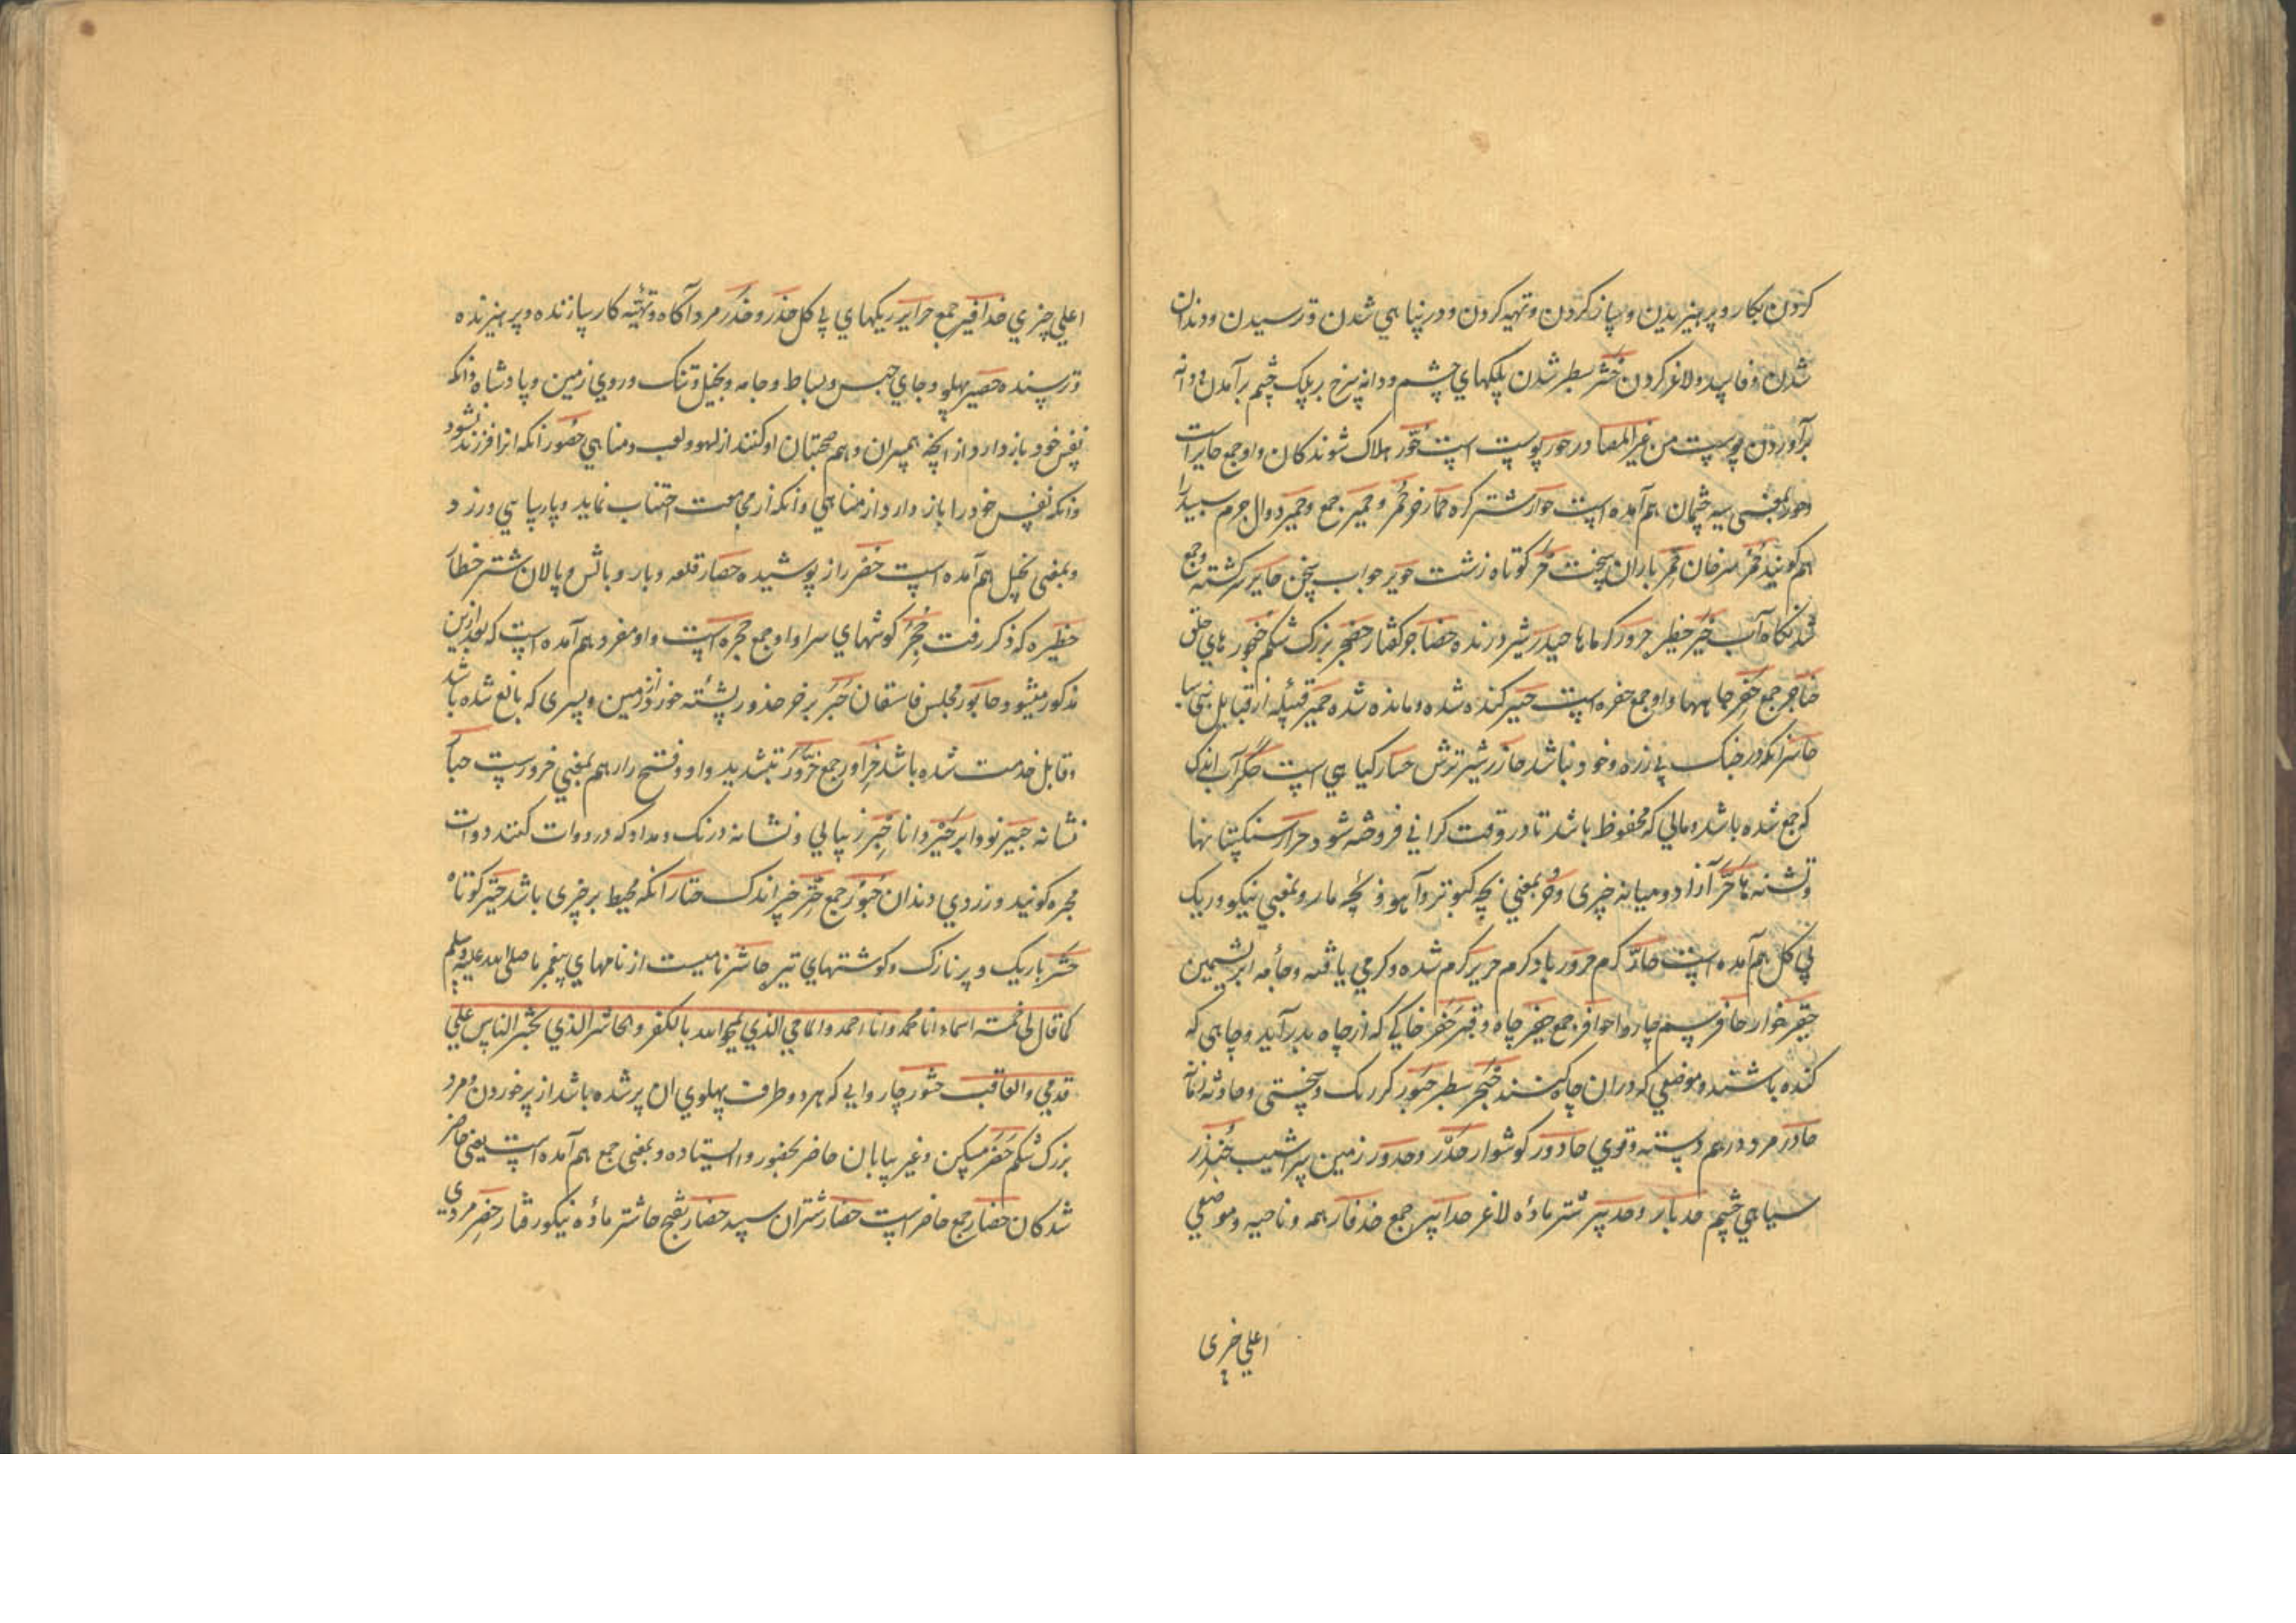 کردن بکار و پرهیزیدن و ساز کردن و تهیه کردن و در پناهی شدن و ترسیدن و دندان
شدن و فاسد و لاغر کردن حثر سطبر شدن پلکهای چشم و دانه سرخ بر پلک چشم برآمدن و دانه
برآوردن پوست من غیر المصادر حور پوست است حور هلاک شوندکان و او جمع حایر است
و حور بمعنی سیه چشمان هم آمده است حوار شتر کره حمار خر حمر و حمیر جمع و حمیر دوال جرم سپید را
هم کویند حمر سرخان حمر باران سخت حویر جواب سخن حایر سرکشته و جمع
شدنکاه آب حیر حظیر حرور کرماها حیدر شیر درنده حضاجر کفتار حضجر بزرک شکم حنجور نای حلق
حناجر جمع حفر چاهها و او جمع حفره است حسیر کنده شده و مانده شده حمیر قبیله از قبایل بنی سبا
حاسر انکه در جنک بی زره و خود باشد حازر شیر ترش حکر آب اندک
که جمع شده باشد و مالی که محفوظ باشد تا در وقت کرانی فروخته شود حرار سنکستانها
و تشنه ها حر آزاد و میانه چیزی و حر بمعنی بچه کبوتر و آهو و بچه مار و بمعنی نیکو و ریک
بی کل هم آمده است حار کرم حرور باد کرم حریر کرم شده و کرمی یافته و جامه ابریشمین
حقیر خوار حافر سم چاروا حوافر جمع حفیر چاه و قبر حفر خاکی که از چاه بدر آید و چاهی که
کنده باشند و موضعی که در ان چاه کنند حبجر سطبر
حادر مرد درهم بسته و قوی حادور کوشوار حدر و حدور زمین سراشیب حندر
سیاهی چشم حدبار و حدبیر شتر ماده لاغر حدابیر جمع حذفار همه و ناحیه و موضعی
اعلی چیزی
اعلی چیزی حذافیر جمع حرایر ریکهای بی کل حذر و حذر مرد آکاه و تهیه کار سازنده و پرهیزنده
و ترسنده حصیر پهلو و جای حبس و بساط و جامه و بخیل و تنک و روی زمین و پادشاه و انکه
نفس خود باز دارد از انچه همسران و هم صحبتان او کنند از لهو و لعب و مناهی حصور انکه از او فرزند نشود
و انکه نفس خود را باز دارد از مناهی و انکه از مجامعت اجتناب نماید و پارسایی ورزد
و بمعنی بخیل هم آمده است حصر راز پوشیده حصار قلعه و بار و بالش و پالان شتر حظار
حظیره که ذکر رفت حجر کوشهای سرا و او جمع حجره است و او مفرد هم آمده است که بعد ازین
مذکور میشود حابور مجلس فاسقان حذور پشته خورد از زمین و پسری که بالغ شده باشد
و قابل خدمت شده باشد حزاور جمع حزور بتشدید واو و فتح را هم بمعنی حزور است حبار
نشانه حبیر نو و ابر حبر دانا حبر زیبایی و نشانه و رنک و مداد که در دوات کنند دوات
محبره کویند و زردی دندان حبور جمع حتر چیز اندک حتار انکه محیط بر چیزی باشد حبتر کوتاه
حشر باریک و پر نازک و کوشتهای تیر حاشر نامیست از نامهای پیغمبر ما صلی الله علیه و سلم
کما قال لی خمسة اسماء انا محمد و انا احمد و الماحی الذی یمحو الله بالکفر و الحاشر الذی یحشر الناس علی
قدمی و العاقب حشور چاروایی که هر دو طرف پهلوی ان پر شده باشد از پر خوردن و مرد
بزرک شکم حضر مسکن و غیر بیابان حاضر بحضور و ایستاده و بمعنی جمع هم آمده است یعنی حاضر
شدکان حضار جمع حاضر است حضار شتران سپید حضار بفتح حا شتر ماده نیکو رفتار حضر مردی